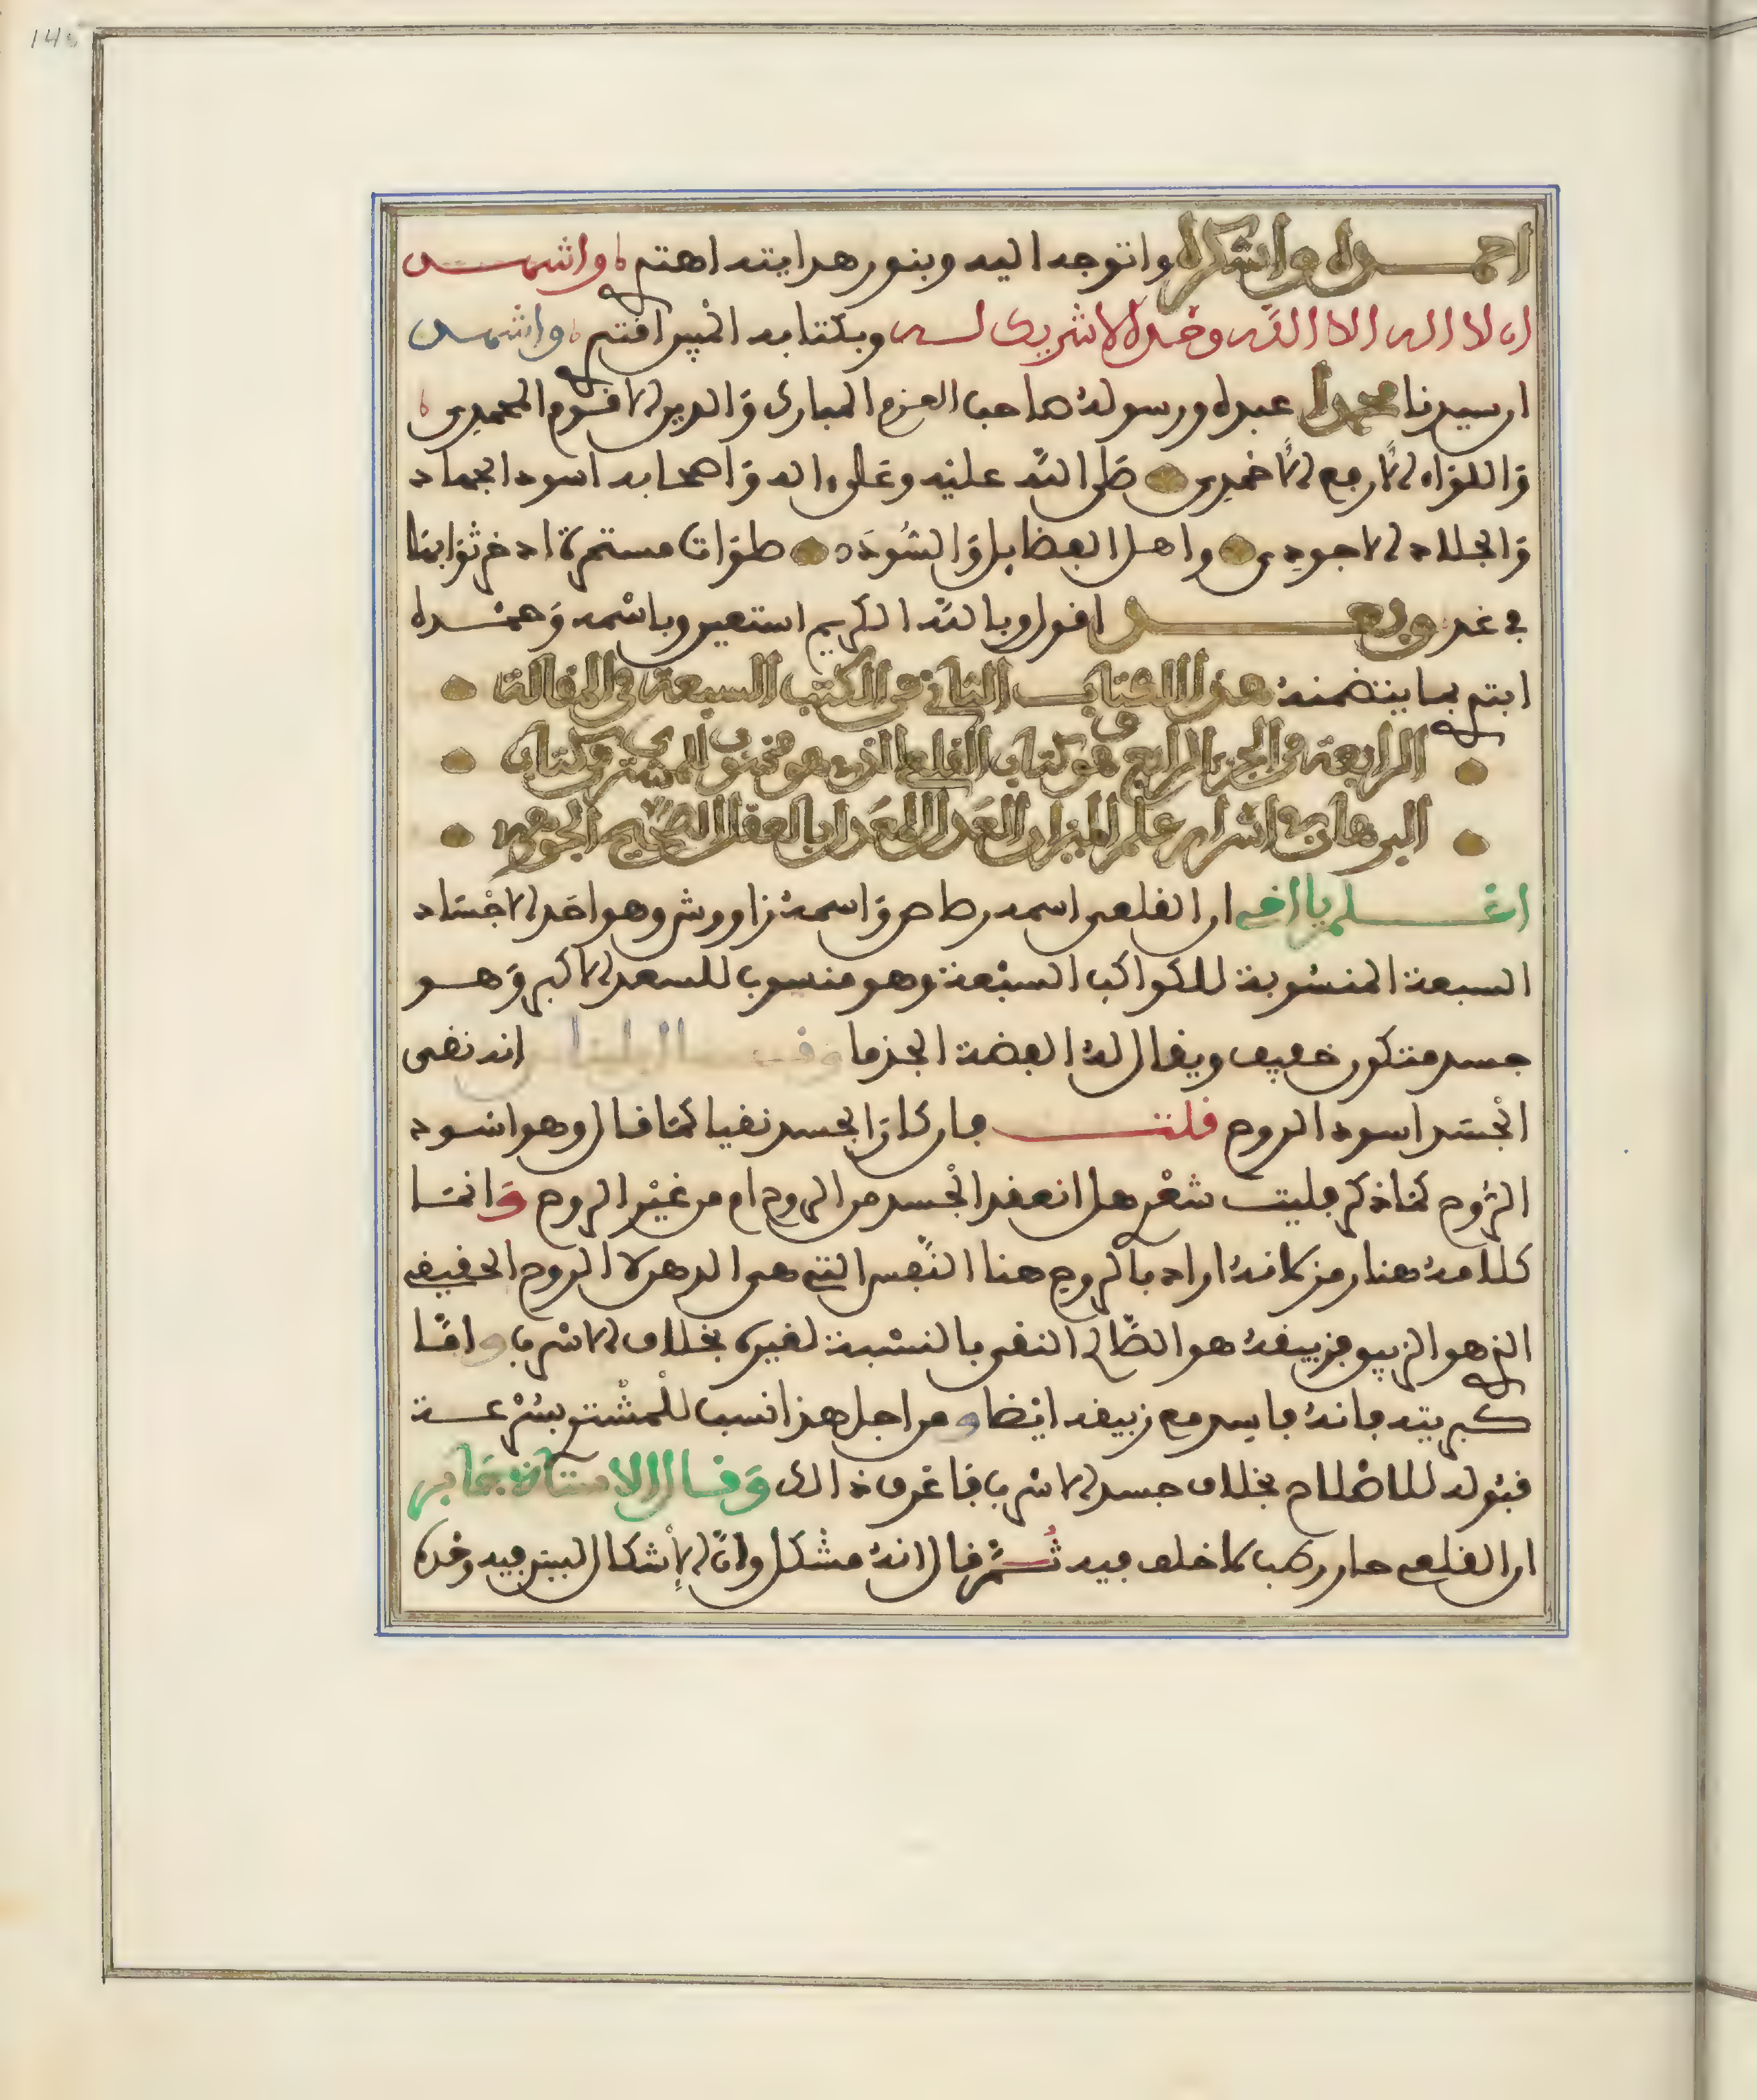 احمده واشكره واتوجه اليه وبنور هدايته اهتدي واشهد
ان لا اله الا الله وحده لا شريك له وبكتابه المبين اقتدي واشهد
ان سيدنا محمدا عبده ورسوله صاحب العزم المبارك والدين الاقوم المحمدي
واللواء الارفع الاحمدي صلى الله عليه وعلى اله واصحابه اسود الجهاد
والجلاد الاجودي واهل الفضايل والسودد صلوات مستمرة ادخر ثوابها
في غد وبعد اقول وبالله الكريم استعين وباسمه وحمده
ابتدي بما يتضمنه هذا الكتاب الثاني من الكتب السبعة في المقالة
الرابعة من الجزء الرابع وهو كتاب القلعي الذي هو مخصوص بالمشتري وكتاب
البرهان في اسرار علم الميزان العدل المعدل بالعقل الصحيح الجوهري
اعلم يا اخي ان القلعي اسمه رصاص واسمه زاووش وهو احد الاجساد
السبعة المنسوبة للكواكب السبعة وهو منسوب للسعد الاكبر وهو
جسد متكون خفيف ويقال له الفضة الجذما وقال بليناس انه نقي
الجسد اسود الروح قلت فان كان الجسد نقيا كما قال وهو اسود
الروح كما ذكر فليت شعري هل انعقد الجسد من الروح ام من غير الروح وانما
كلامه هنا رمز لانه اراد بالروح هنا النفس التي هي الدهن لا الروح الحقيقي
الذي هو الزيبق فزيبقه هو الصالي النقي بالنسبة لغيره بخلاف الاسرب واما
كبريته فانه فاسد مع زيبقه ايضا ومن اجل هذا نسب للمشتري بسرعة
قبوله للاصلاح بخلاف جسد الاسرب فاعرف ذالك وقال الاستاذ جابر
ان القلعي حار رطب لا خلف فيه ثم قال انه مشكل وان الاشكال البين فيه وحده